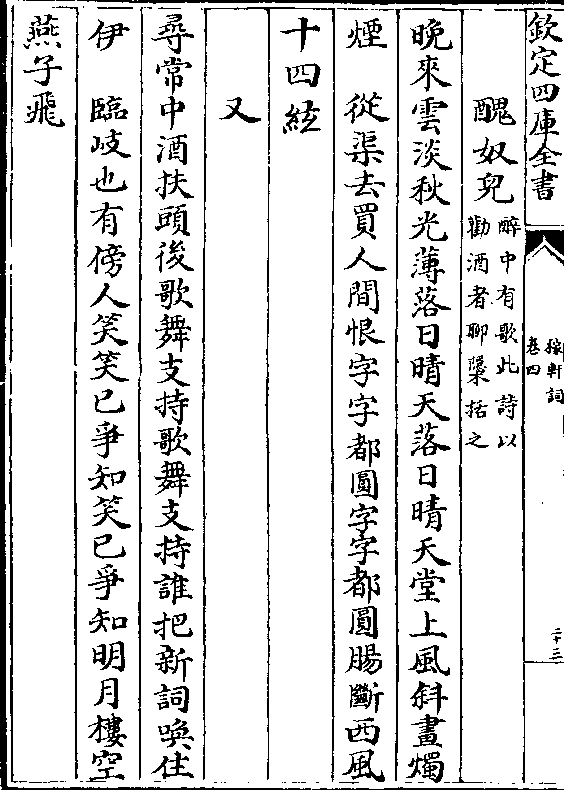 欽定四庫全書
稼軒詞
卷四
二十三
醜奴兒
醉中有歌此詩以
勸酒者聊檃括之
晚來雲淡秋光薄落日晴天落日晴天堂上風斜畫燭
煙　從渠去買人間恨字字都圓字字都圓腸斷西風
十四絃
又
尋常中酒扶頭後歌舞支持歌舞支持誰把新詞喚住
伊　臨岐也有傍人笑笑已爭知笑已爭知明月樓空
燕子飛